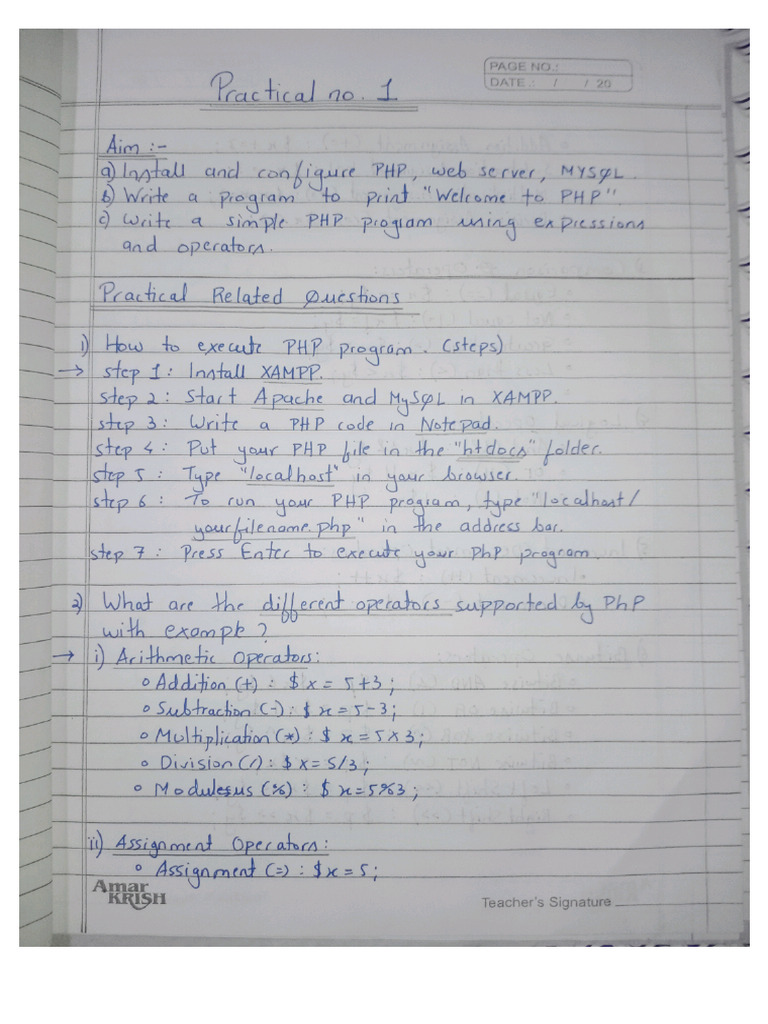 PAGE NO.:
DATE.: / / 20
Practical no. 1
Aim :-
a) Install and configure PHP, web server, MYSQL.
b) Write a program to print "Welcome to PHP".
c) Write a simple PHP program using expressions
and operators.
Practical Related Questions
1) How to execute PHP program. (steps)
→ step 1: Install XAMPP.
step 2: Start Apache and MySQL in XAMPP.
step 3: Write a PHP code in Notepad.
step 4: Put your PHP file in the "htdocs" folder.
step 5: Type "localhost" in your browser.
step 6: To run your PHP program, type "localhost/
yourfilename.php" in the address bar.
step 7: Press Enter to execute your PhP program.
2) What are the different operators supported by PhP
with example?
→ i) Arithmetic Operators:
o Addition (+) : $x = 5+3;
o Subtraction (-) : $x = 5-3;
o Multiplication (*) : $x = 5x3;
o Division (/) : $x = 5/3;
o Modulesus (%) : $x = 5%3;
ii) Assignment Operators:
o Assignment (=) : $x = 5;
Amar
KRISH
Teacher's Signature